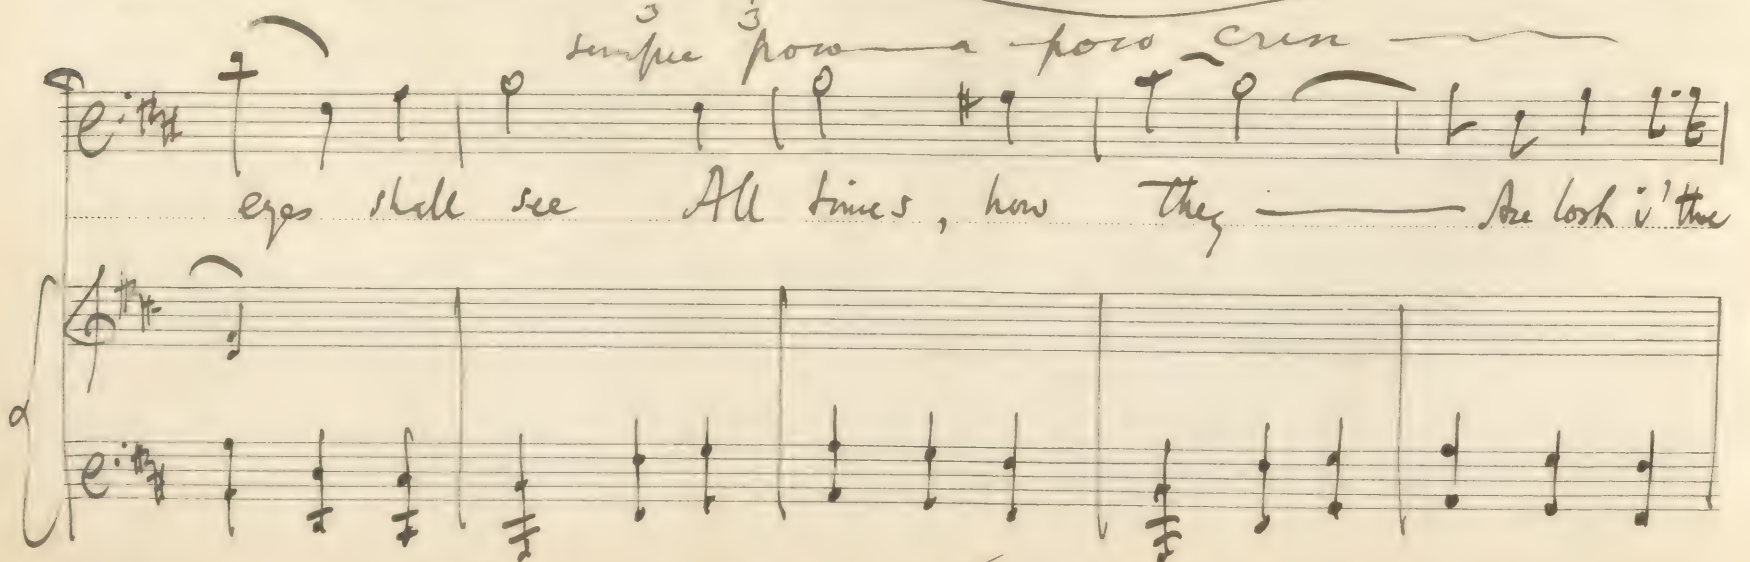 3 3
sempre poco a poco cresc
eyes shall see All times, how they Are lost i' the